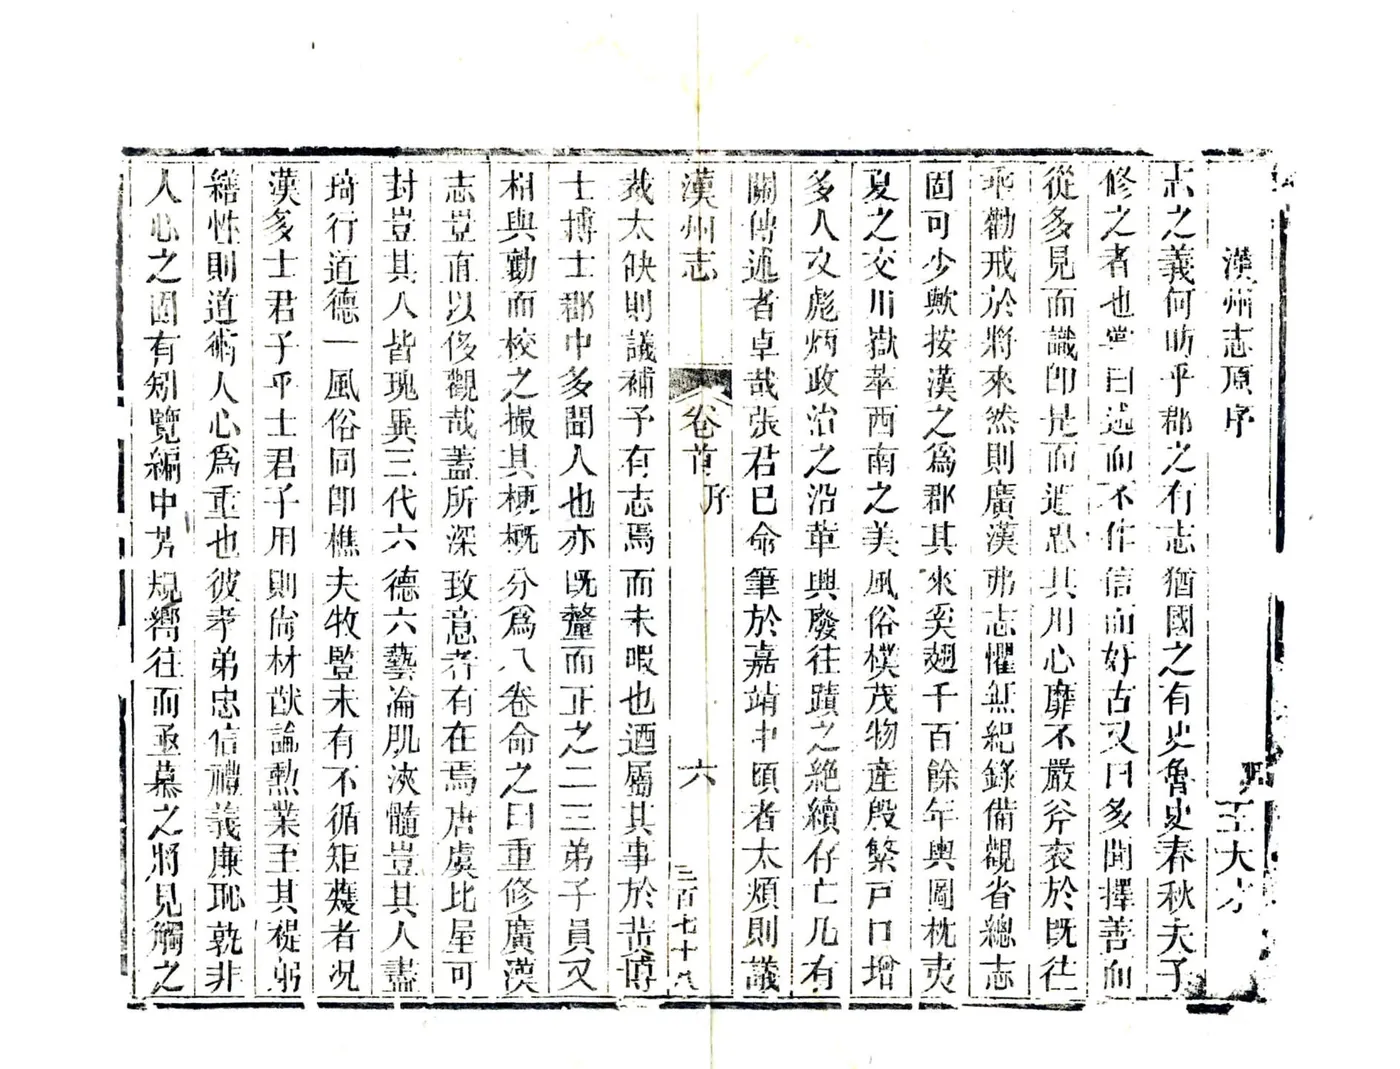 漢州志原序
王大才
志之義何昉乎郡之有志猶國之有史魯史春秋夫子
修之者也嘗曰述而不作信而好古又曰多聞擇善而
從多見而識即是而遐思其用心靡不嚴斧袞於既往
乖勸戒於將來然則廣漢弗志懼無紀錄備觀省總志
固可少歟按漢之爲郡其來奚翅千百餘年輿圖枕夷
夏之交川嶽萃西南之美風俗樸茂物產殷繁戸口增
多人文彪炳政治之沿革興廢往蹟之絶續存亡凡有
關傳述者卓哉張君已命筆於嘉靖中頃者太煩則議
漢州志
卷首
序
六
三百七十八
裁太缺則議補予有志焉而未暇也迺屬其事於黃博
士博士郡中多聞人也亦旣釐而正之二三弟子員又
相與勷而校之撮其梗概分爲八卷命之曰重修廣漢
志豈直以侈觀哉蓋所深致意者有在焉唐虞比屋可
封豈其人皆瑰異三代六德六藝淪肌浹髓豈其人盡
琦行道德一風俗同卽樵夫牧豎未有不循矩矱者况
漢多士君子乎士君子用則尚材猷論勲業至其褆躬
繕性則道術人心爲重也彼孝弟忠信禮義廉恥孰非
人心之固有矧覽編中芳規嚮往而亟慕之將見觸之